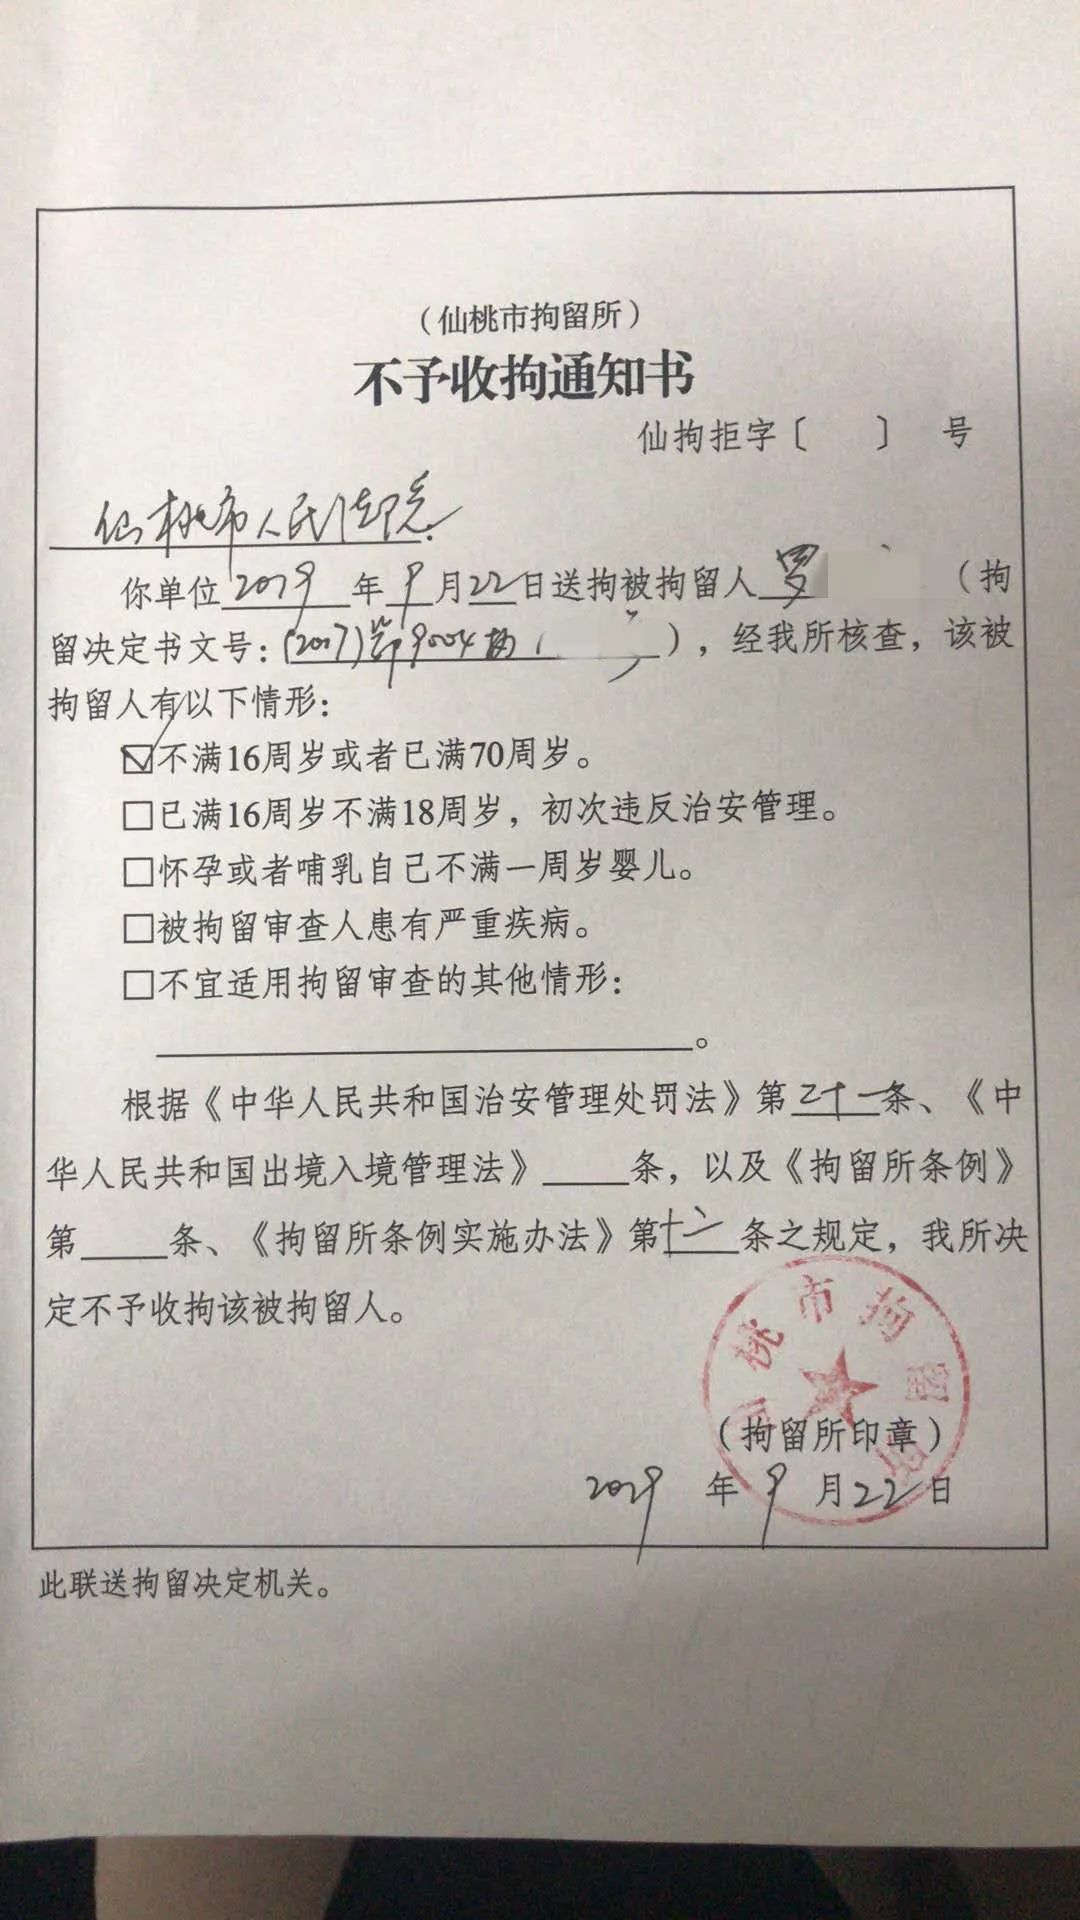 （仙桃市拘留所）
不予收拘通知书
仙拘拒字〔 〕 号
仙桃市人民法院
你单位2019年9月22日送拘被拘留人罗 （拘
留决定书文号：(2017)鄂9004执 ），经我所核查，该被
拘留人有以下情形：
☑不满16周岁或者已满70周岁。
□已满16周岁不满18周岁，初次违反治安管理。
□怀孕或者哺乳自己不满一周岁婴儿。
□被拘留审查人患有严重疾病。
□不宜适用拘留审查的其他情形：
。
根据《中华人民共和国治安管理处罚法》第二十一条、《中
华人民共和国出境入境管理法》 条，以及《拘留所条例》
第 条、《拘留所条例实施办法》第十八条之规定，我所决
定不予收拘该被拘留人。
桃市拘留所
（拘留所印章）
2019年9月22日
此联送拘留决定机关。